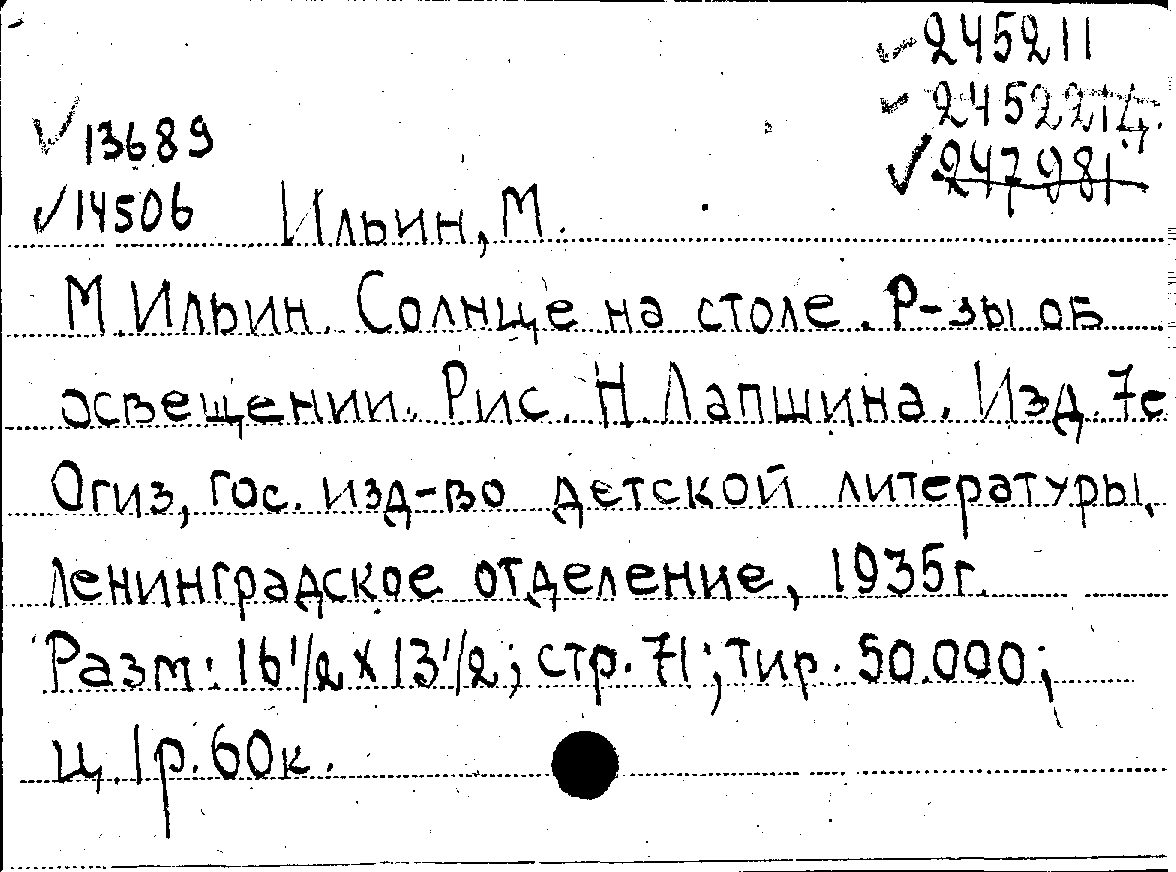 ✓245211
✓245221
✓13689
✓247981
✓14506
Ильин, М.
М. Ильин. Солнце на столе. Р-зы об
освещении. Рис. Н. Лапшина. Изд. 7е
Огиз, гос. изд-во детской литературы,
ленинградское отделение, 1935г.
Разм: 16 1/2 х 13 1/2; стр. 71; тир. 50.000;
ц. 1р. 60к.